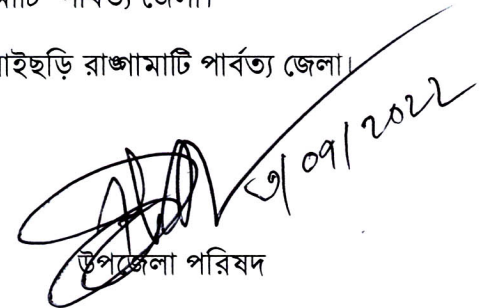 মাটি পার্বত্য জেলা।
াইছড়ি রাঙ্গামাটি পার্বত্য জেলা।
৩/০৭/২০২২
উপজেলা পরিষদ